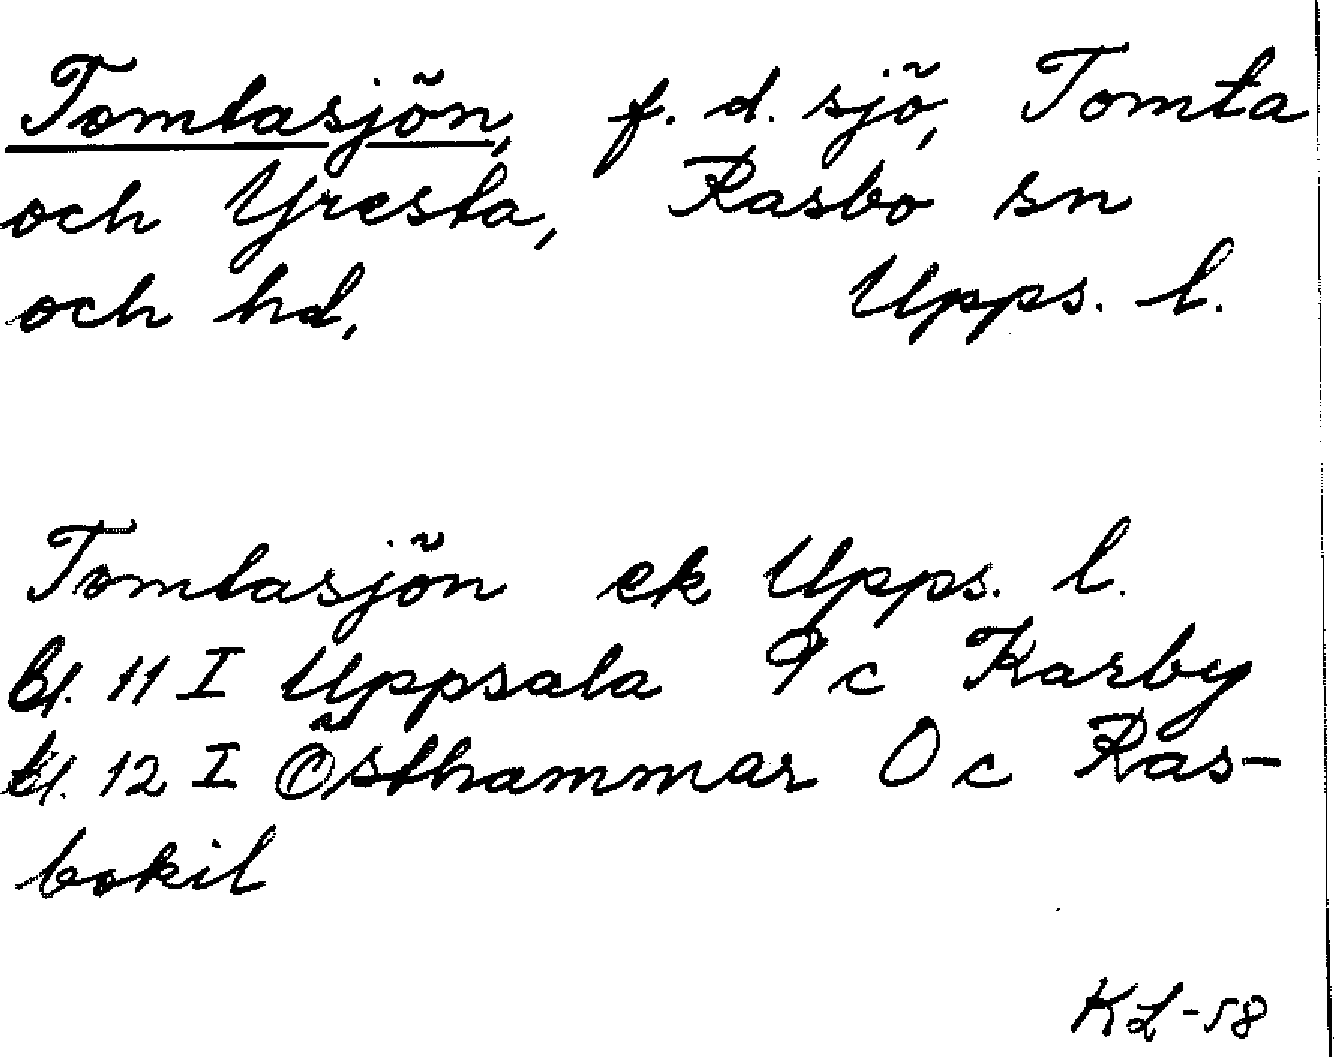 Tomtasjön, f. d. sjö, Tomta
och Yresta, Rasbo sn
och hd. Upps. l.
Tomtasjön ek Upps. l.
bl. 11 I Uppsala 9 c Karby
bl. 12 I Östhammar 0 c Ras-
bokil
KL-58